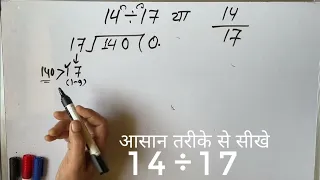 14 ÷ 17 या 14/17
17 √140 (0.
140 > 17
(1-9)
आसान तरीके से सीखे
14÷17